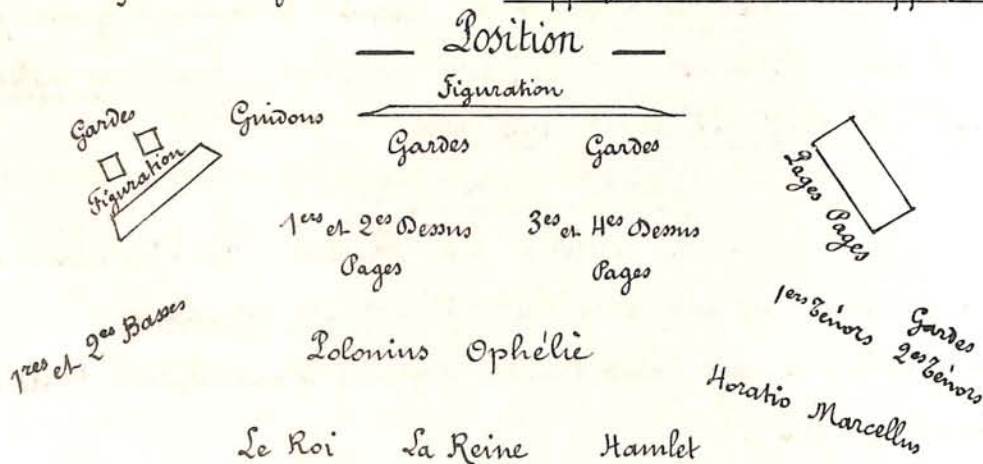 Position
Figuration
Gardes
Guidons
Figuration
Gardes Gardes
Pages Pages
Pages
1ers et 2es Dessus 3es et 4es Dessus
Pages Pages
1res et 2es Basses
Polonius Ophélie
1ers Ténors
Gardes
2es Ténors
Horatio Marcellus
Le Roi La Reine Hamlet